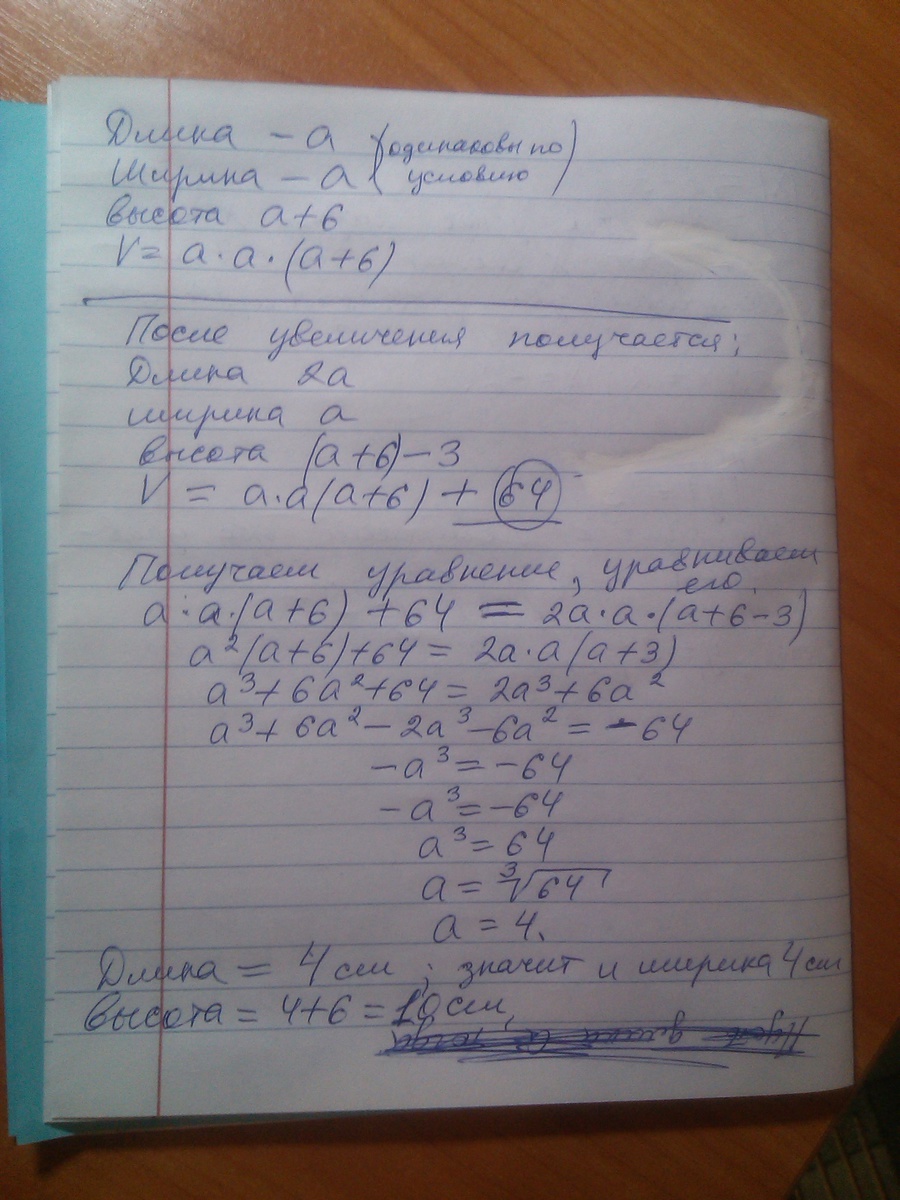 Длина – a (одинаковы по
Ширина – a условию)
высота a+6
V = a·a·(a+6)
После увеличения получается;
Длина 2a
ширина a
высота (a+6)-3
V = a·a(a+6) + 64
Получаем уравнение, уравниваем
его.
a·a·(a+6) +64 = 2a·a·(a+6-3)
a²(a+6)+64 = 2a·a(a+3)
a³+6a²+64 = 2a³+6a²
a³+6a²-2a³-6a² = -64
-a³ = -64
-a³ = -64
a³ = 64
a = ³√64
a = 4.
Длина = 4 см ; значит и ширина 4 см
высота = 4+6 = 10 см,